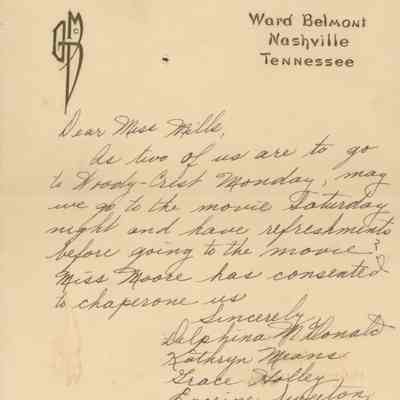 Ward Belmont
Nashville
Tennessee
Dear Miss Mills,
As two of us are to go
to Woody-Crest Monday, may
we go to the movie Saturday
night and have refreshments
before going to the movie?
Miss Moore has consented
to chaperone us
Sincerely,
Dalphina McDonald
Kathryn Means
Grace Holley